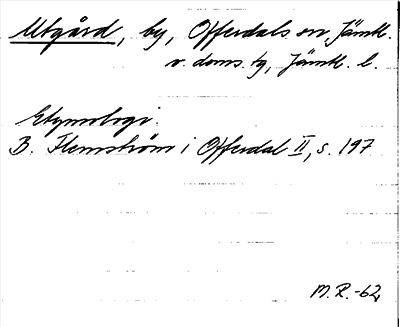 Utgård, by, Offerdals sn, Jämtl.
v. doms. tg, Jämtl. l.
Etymologi.
B. Flemström i Offerdal II, s. 197
M.R.-62